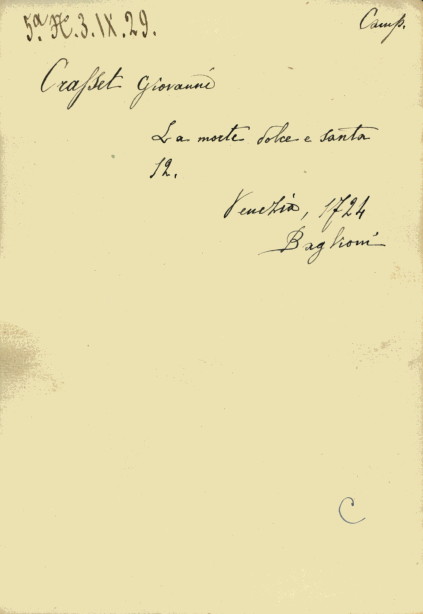 5ª H.3.IX.29.
Camp.
Crasset Giovanni
La morte dolce e santa
12.
Venezia, 1724
Baglioni
C